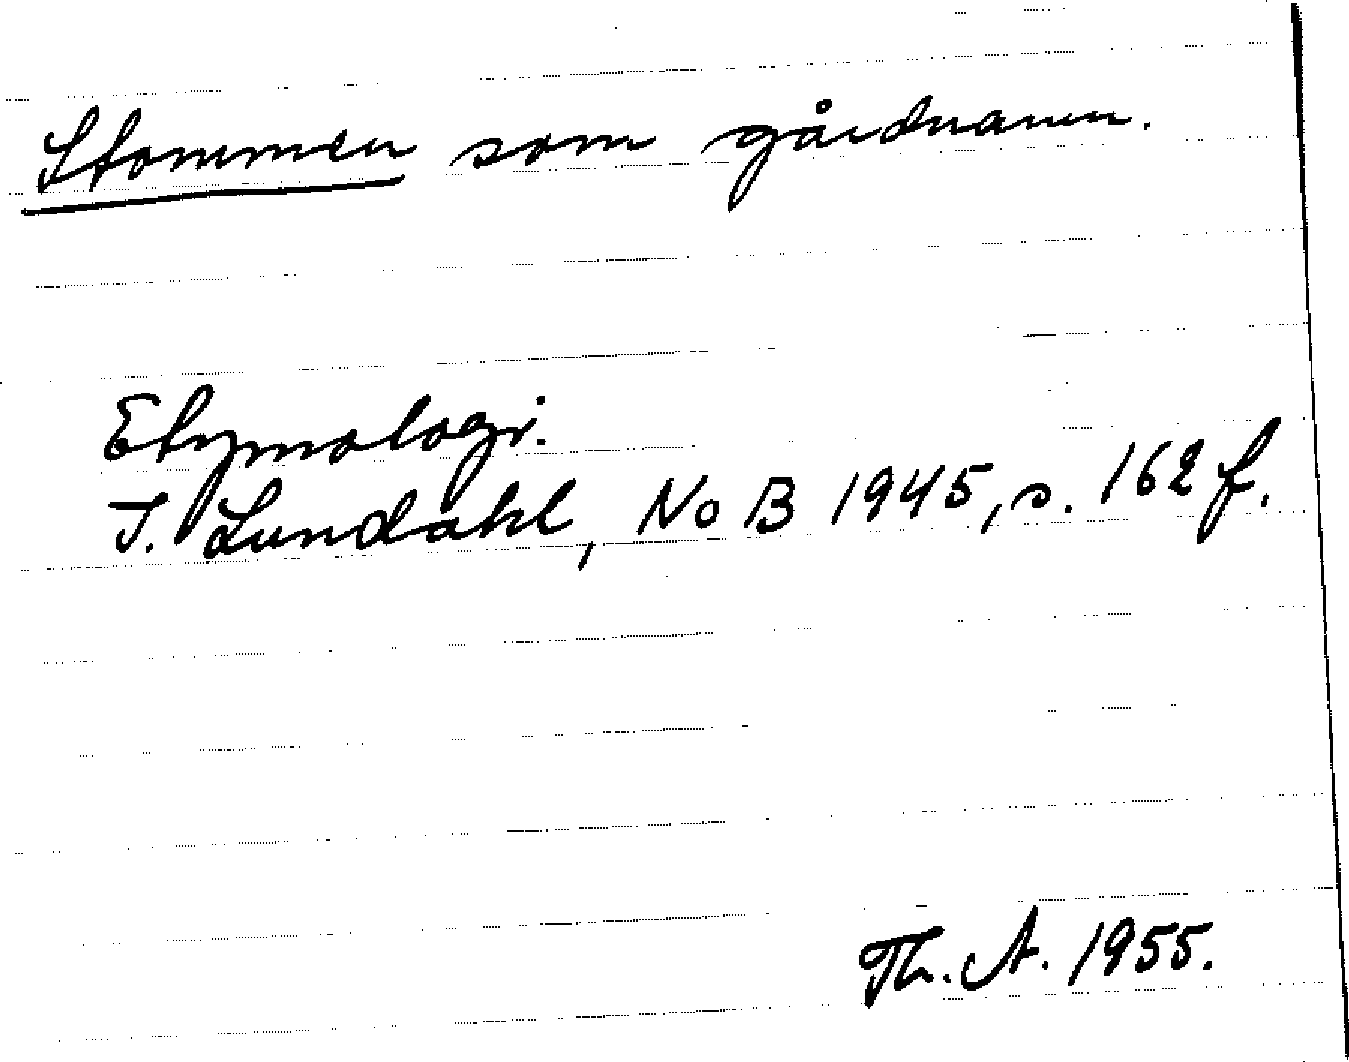 Stommen som gårdnamn.
Etymologi.
I. Lundahl, NoB 1945, s. 162 f.
Th. A. 1955.